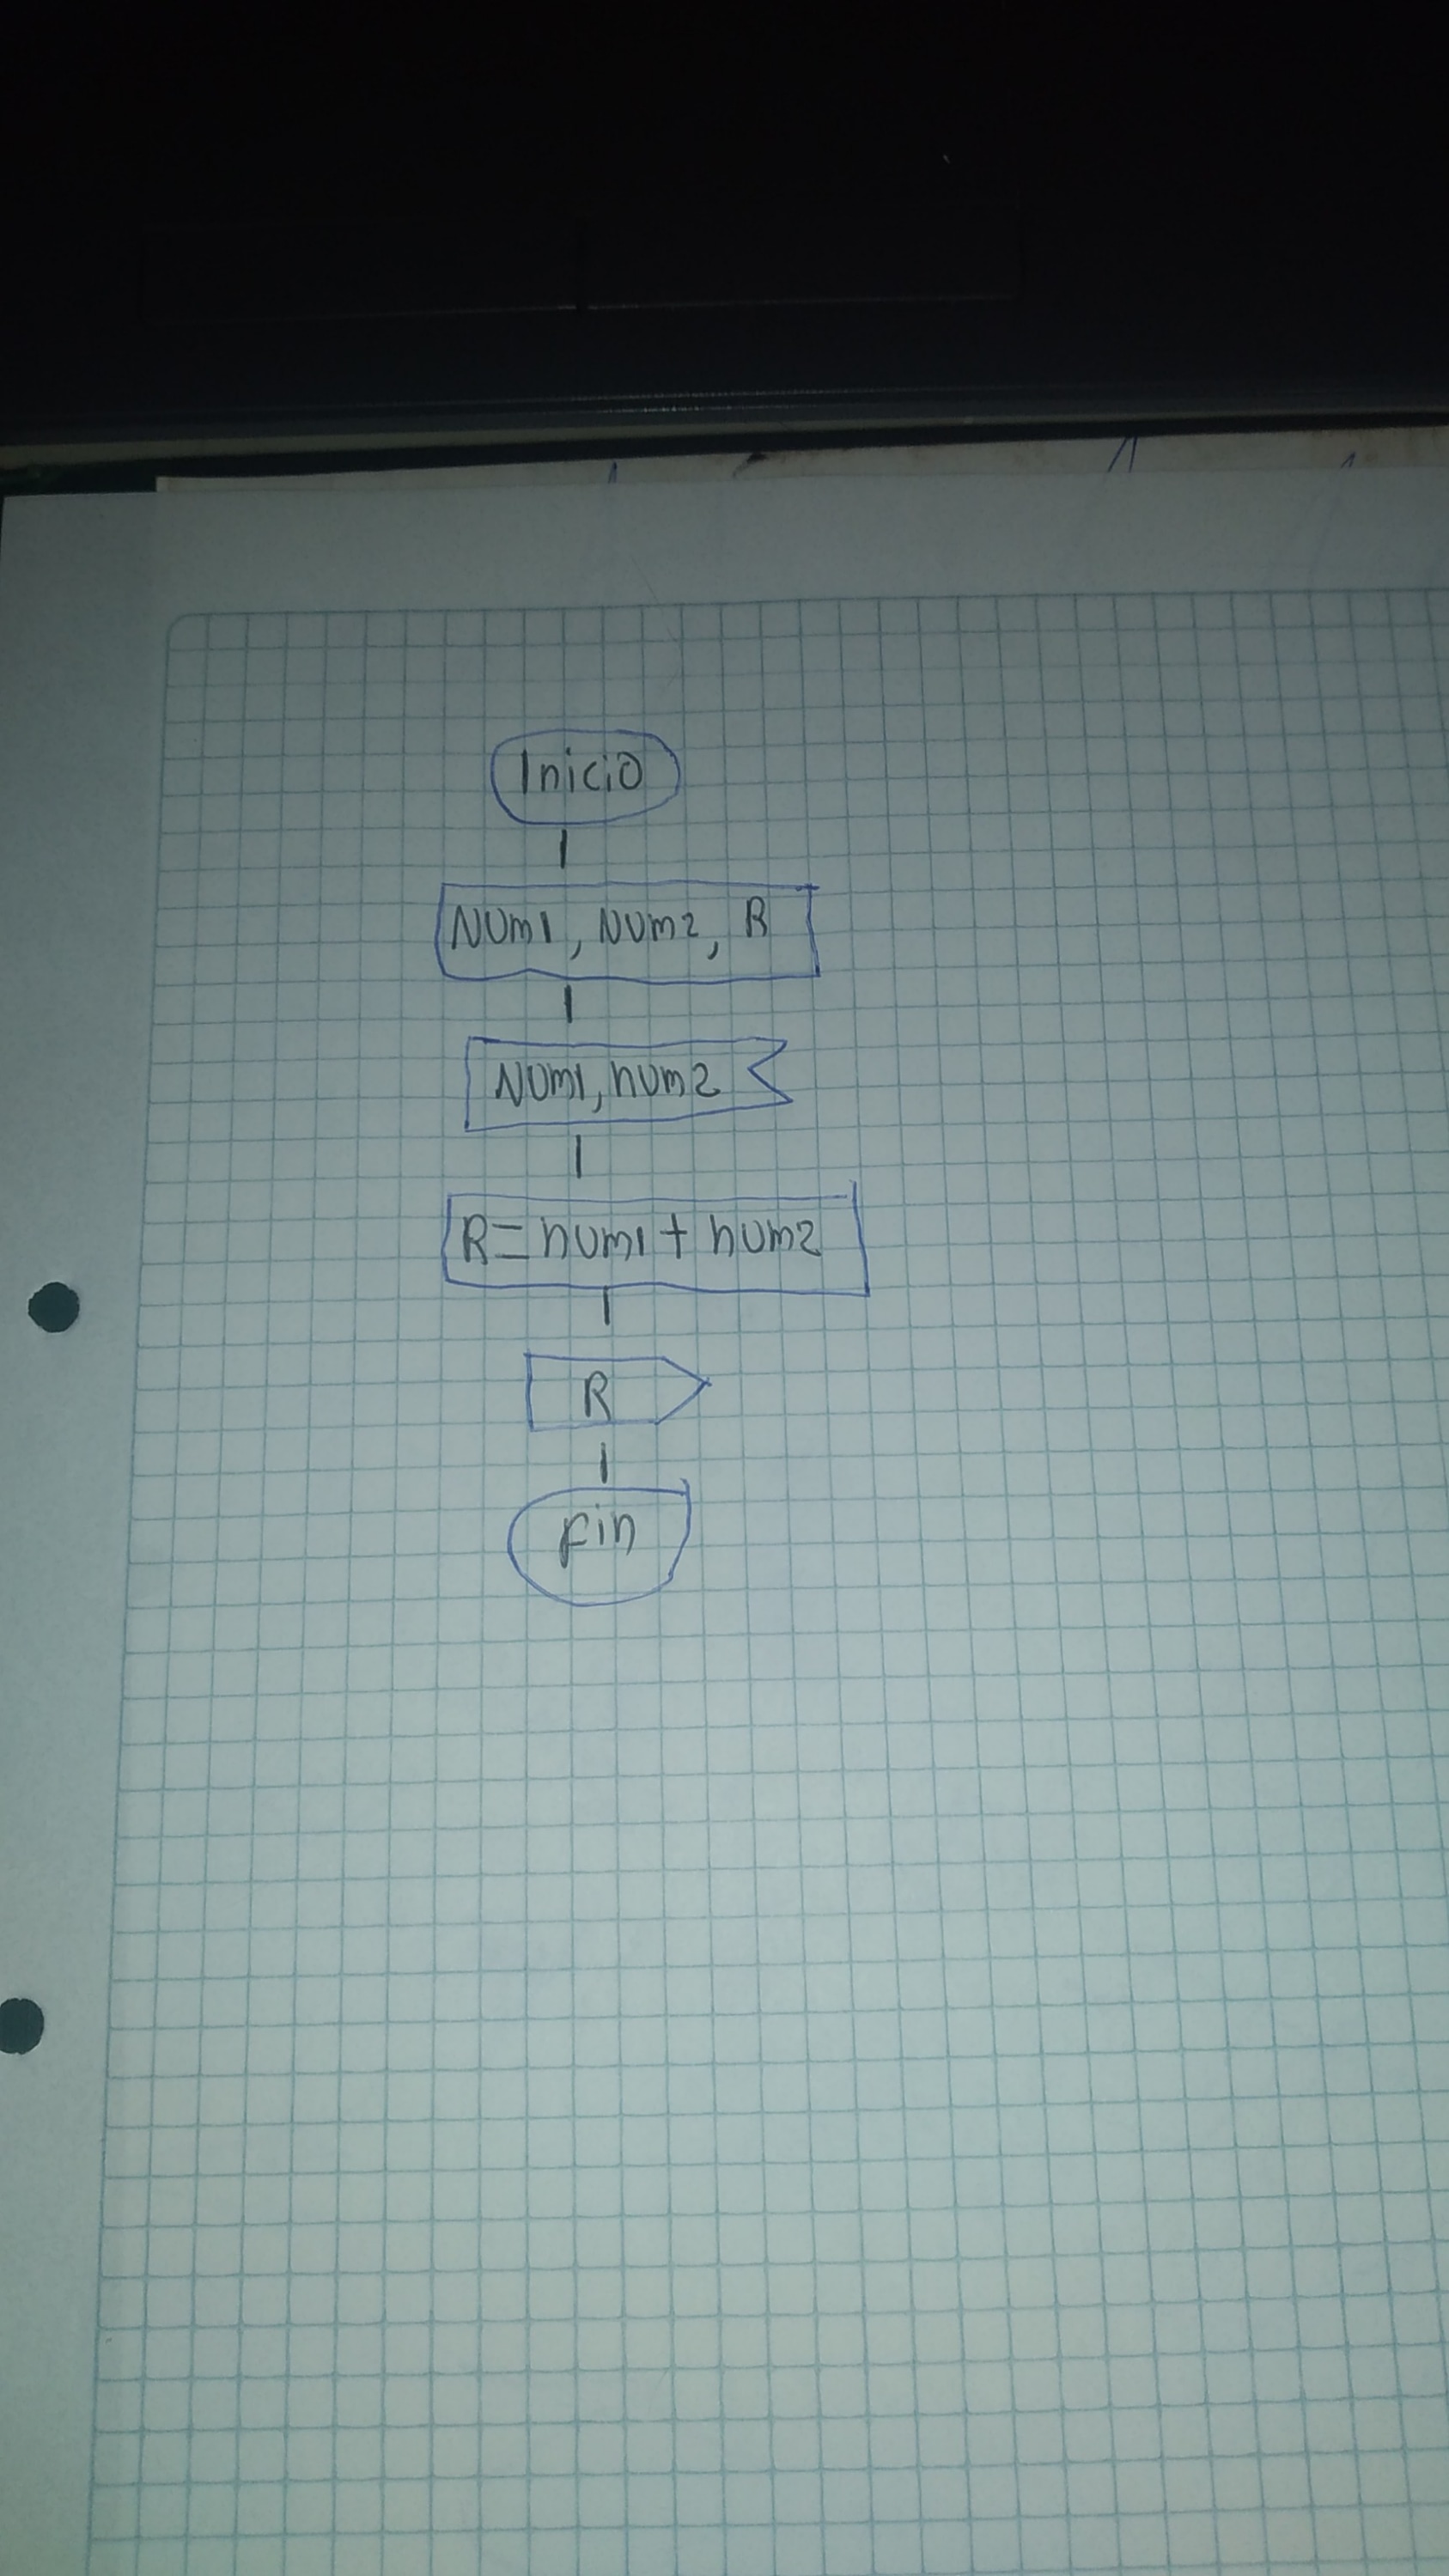 Inicio
Num1, Num2, R
Num1, num2
R = num1 + num2
R
Fin